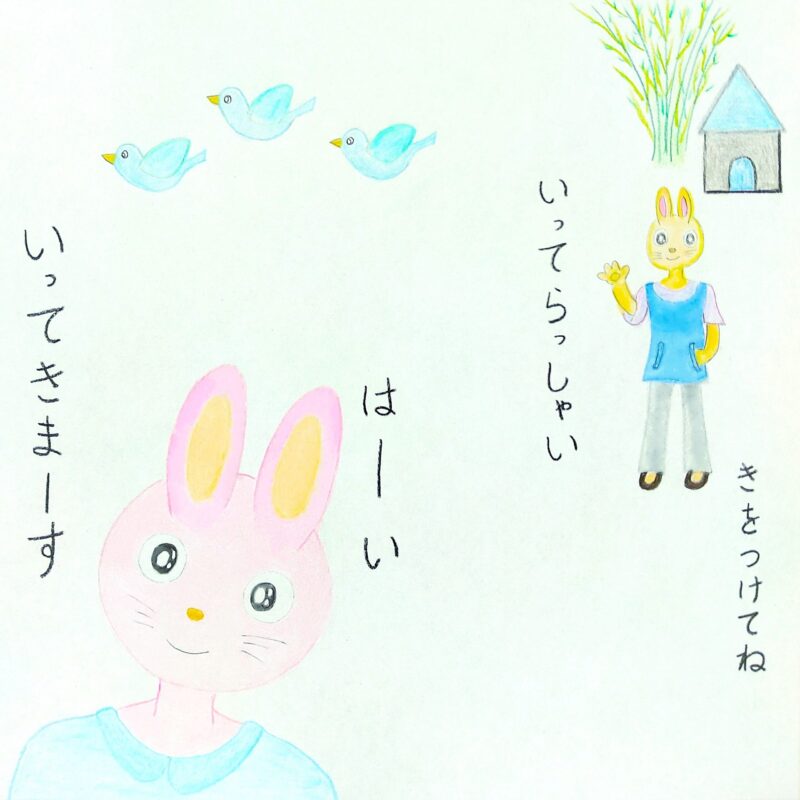 いってらっしゃい
きをつけてね
はーい
いってきまーす